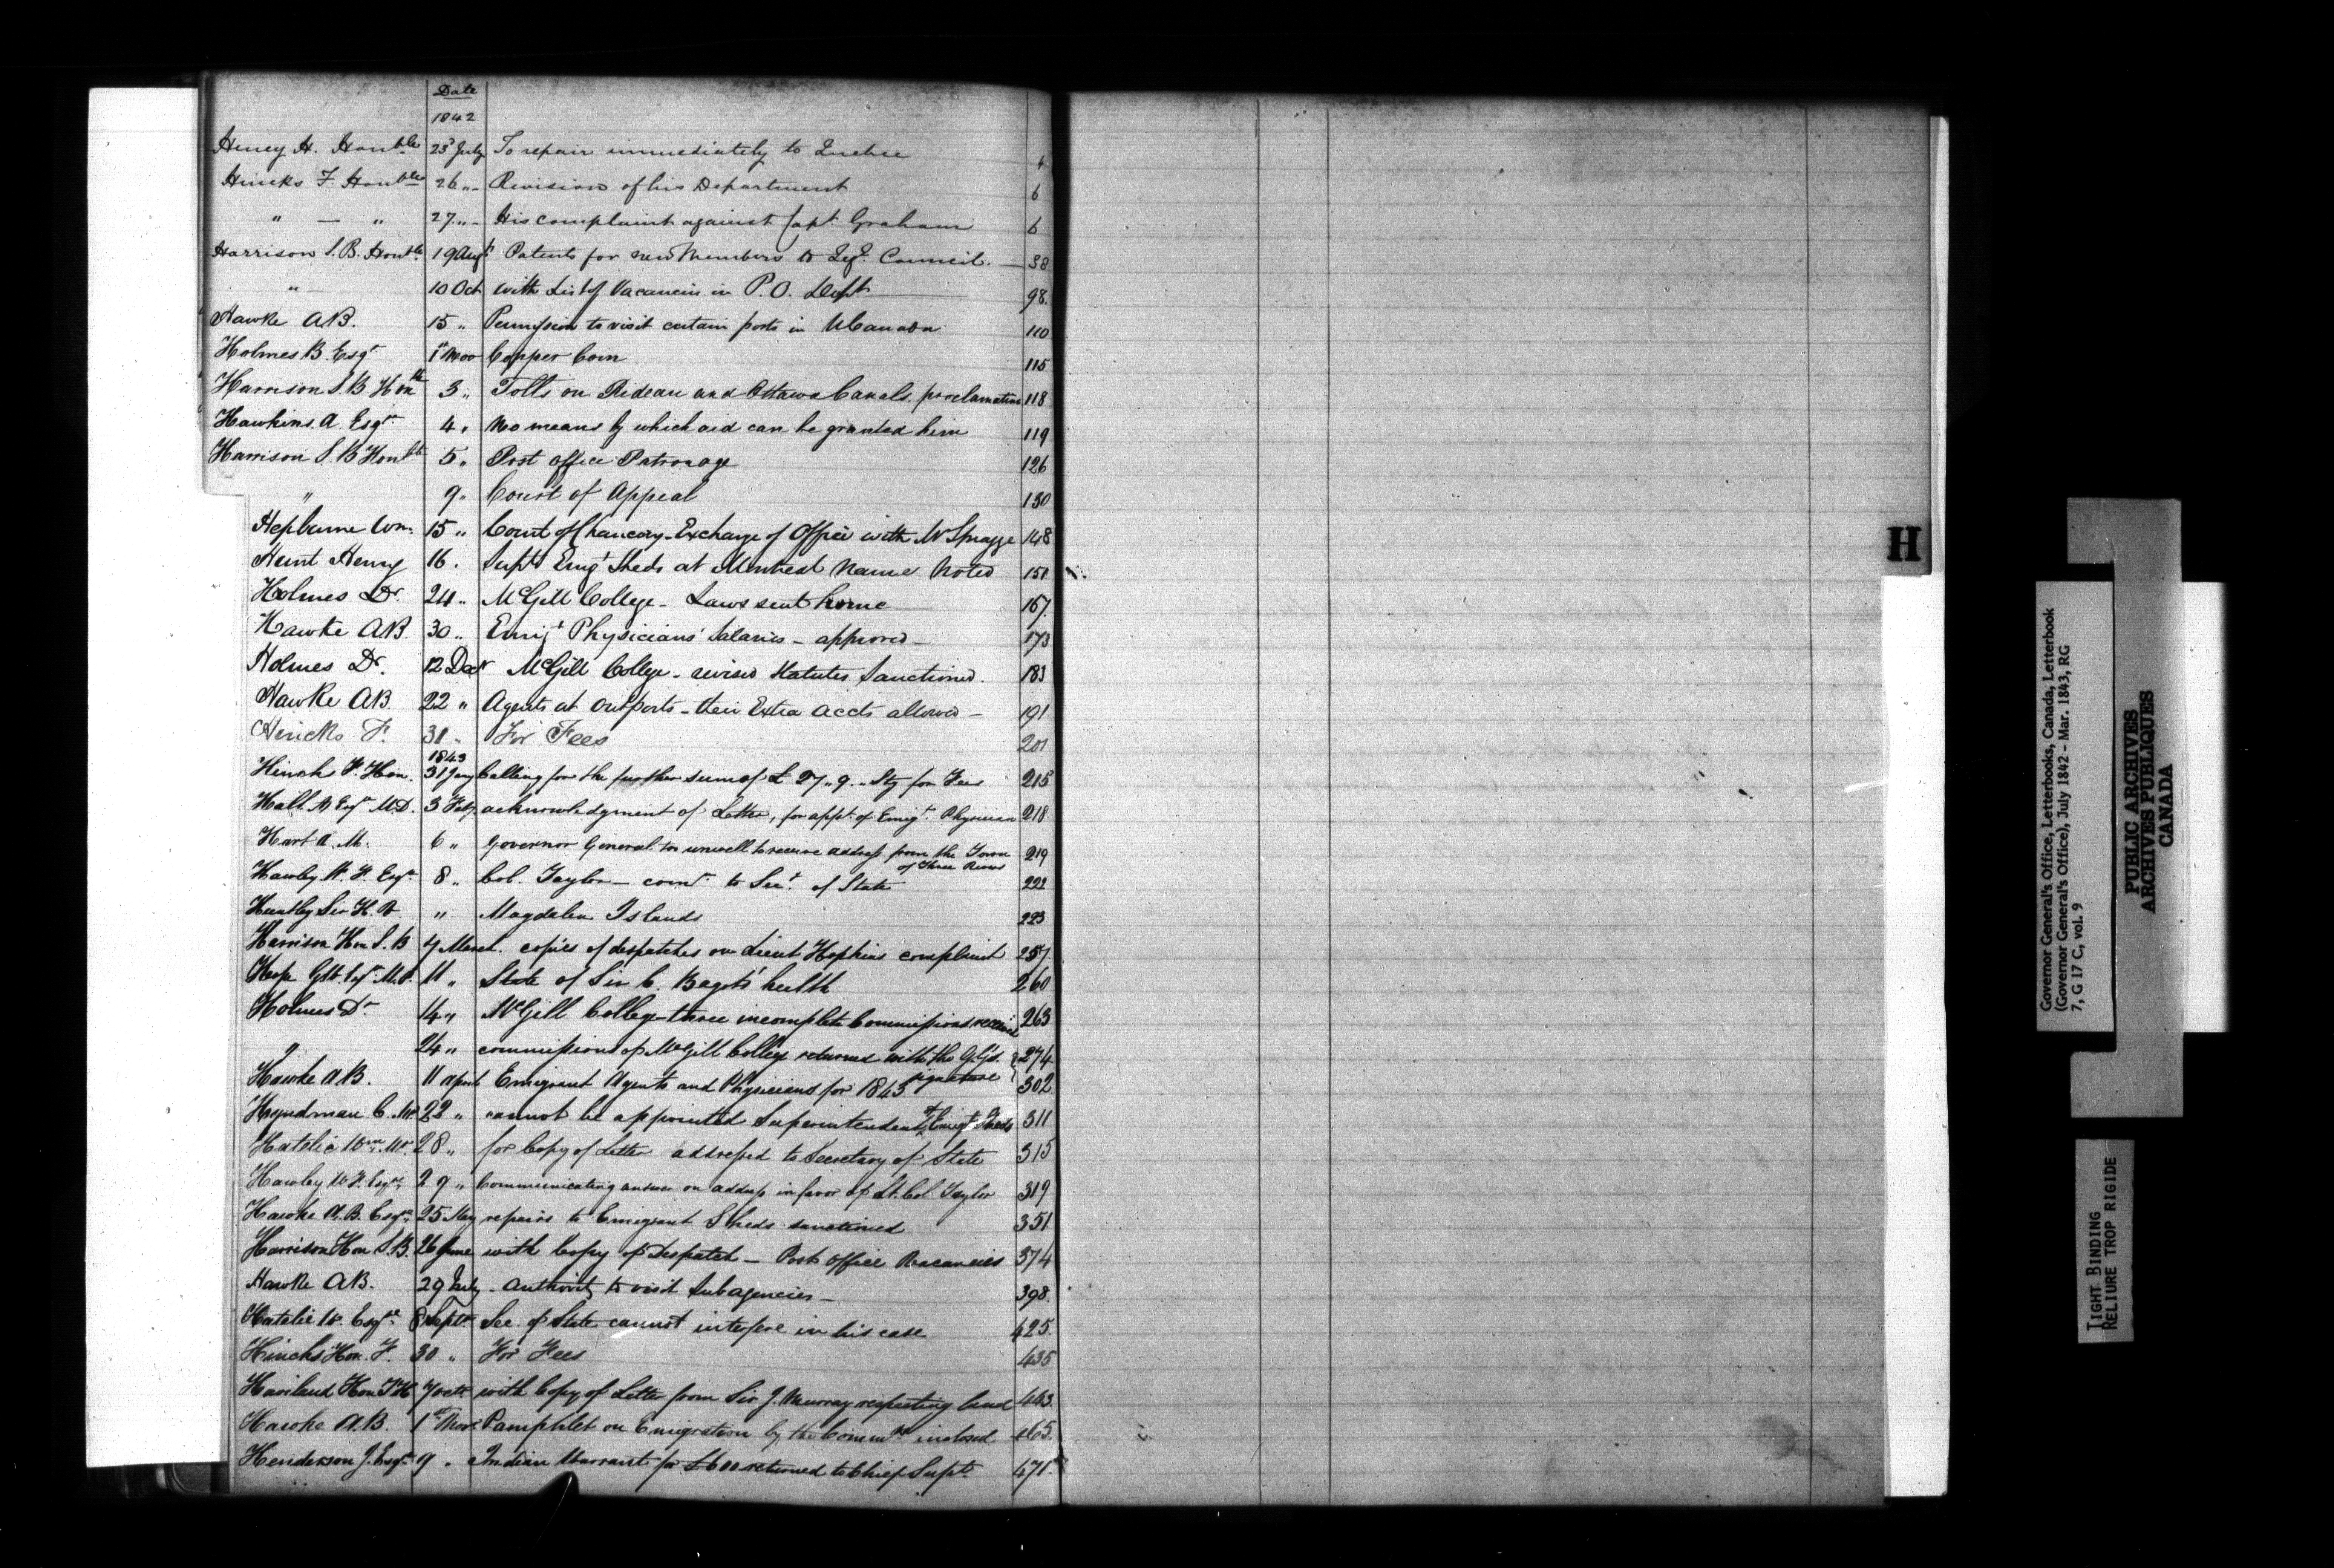 Date
1842
Heney H. Honble 23d July To repair immediately to Quebec 4
Hincks F. Honble 26 " - Revision of his Department 6
" — " 27 " - His complaint against Capt. Graham 6
Harrison S. B. Honble 19 Augt Patents for new Members to Leg. Council. — 38
" 10 Oct with List of Vacancies in P. O. Dept 98.
Hawke AB. 15 " Permission to visit certain posts in U Canada 110
Holmes B. Esqr 1st Nov Copper Coin 115
Harrison S. B Honble 3 " Tolls on Rideau and Ottawa Canals. proclamation 118
Hawkins. A Esqr 4 " No means by which aid can be granted him 119
Harrison S. B Honble 5 " Post Office Patronage 126
" 9 " Court of Appeal 130
Hepburne Wm. 15 " Court of Chancery - Exchange of Office with Mr Spragge 148
Hunt Henry 16 . Supt Emigt Sheds at Montreal Name Noted 151
Holmes Dr. 24 " McGill College - Laws sent home 167.
Hawke AB. 30 " Emigt Physicians' Salaries - approved - 173
Holmes Dr. 12 Decr McGill College - revised Statutes Sanctioned. 183
Hawke AB. 22 " Agents at Outports - their Extra Accts allowed - 191
Hincks F. 31 " For Fees 201
1843
Hincks F. Hon. 31 Jany Calling for the further sum of £ 27 " 9 " Stg for Fees 215
Hall A Esqr M.D. 3 Feby acknowledgment of Letter, for appt. of Emigt. Physician 218
Hart A. M. 6 " Governor General too unwell to receive address from the Town
of Three Rivers 219
Hawley W. F. Esqr 8 " Col. Taylor - comd. to Secy. of State 222
Huntley Sir H. V. " Magdalen Islands 223
Harrison Hon S. B 7 March. copies of despatches on Lieut Hopkins complaint 257.
Hope Esqr M.P. 11 " State of Sir C. Bagot's health 260
Holmes Dr 14 " McGill College - three incomplete Commissions received 263
" 24 " commissions of McGill College returned with the G.G's. 274
signature
Hawke AB. 11 April Emigrant Agents and Physicians for 1843 302
Hyndman C. Mr 22 " cannot be appointed Superintendent of Emigt Sheds 311
Hatelie Wm. Mr. 28 " for Copy of Letter addressed to Secretary of State 315
Hawley W. F. Esqr. 29 " Communicating answer on address in favor of Lt. Col Taylor 319
Hawke A. B. Esqr. 25 May repairs to Emigrant Sheds sanctioned 351
Harrison Hon S. B. 26 June with Copy of Despatch - Post Office Vacancies 374
Hawke AB. 29 July - Authority to visit Subagencies - 398.
Hatelie W. Esqre 8 Sept. Sec. of State cannot interfere in his case 425.
Hincks Hon. F. 30 " For Fees 435
Haviland Hon T H 7 Oct. with Copy of Letter from Sir J. Murray respecting land 443.
Hawke A.B. 1st Novr. Pamphlet on Emigration by the Commrs inclosed 463.
Henderson J. Esqr. 9 " Indian Warrant for £600 returned to Chief Supt. 471.
H
Governor General's Office, Letterbooks, Canada, Letterbook
(Governor General's Office), July 1842 - Mar. 1843, RG
7, G 17 C, vol. 9
PUBLIC ARCHIVES
ARCHIVES PUBLIQUES
CANADA
TIGHT BINDING
RELIURE TROP RIGIDE